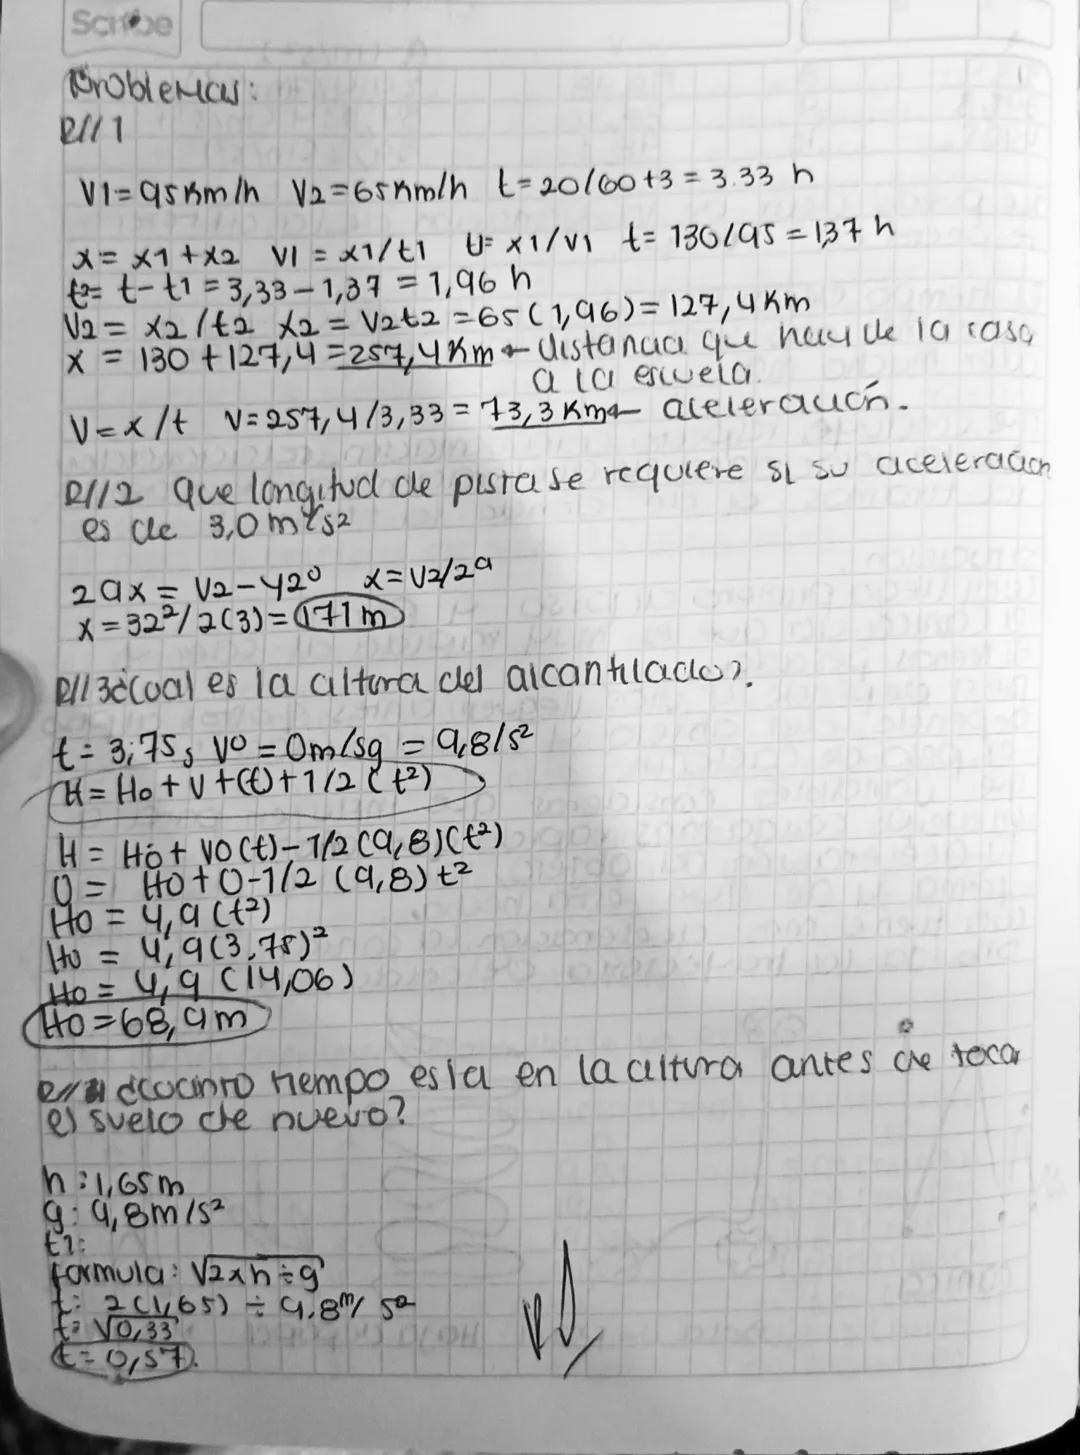 Scribe
Problemas:
R// 1
V1=95Km/h V2=65Km/h t=20/60+3=3.33 h
x= x1+x2 V1 = x1/t1 t1= x1/v1 t= 130/95=1,37 h
t2= t-t1=3,33-1,37 = 1,96 h
V2= x2/t2 x2= V2t2=65(1,96)=127,4Km
x = 130+127,4=257,4Km← distancia que hay de la casa
a la escuela.
V=x/t V=257,4/3,33=73,3Km← aceleración.
R//2 que longitud de pista se requiere si su aceleración
es de 3,0m/s2
2ax= V2-V20 x=V2/2a
x=32²/2(3)=171m
R//3¿cual es la altura del alcantilado?.
t=3,75s V0=0m/sg =9,8/s²
H=Ho+V+(t)+1/2(t²)
H= Ho+V0(t)-1/2(9,8)(t²)
0= Ho+0-1/2 (9,8)t²
Ho = 4,9(t²)
Ho = 4,9(3,75)²
Ho= 4,9 (14,06)
Ho=68,9m
R//4 ¿cuanto tiempo esta en la altura antes de tocar
el suelo de nuevo?
h:1,65m
g:9,8m/s²
t?:
formula:√2xh÷g
t: 2(1,65) ÷ 9.8m/s²
t=√0,33
t=0,57.